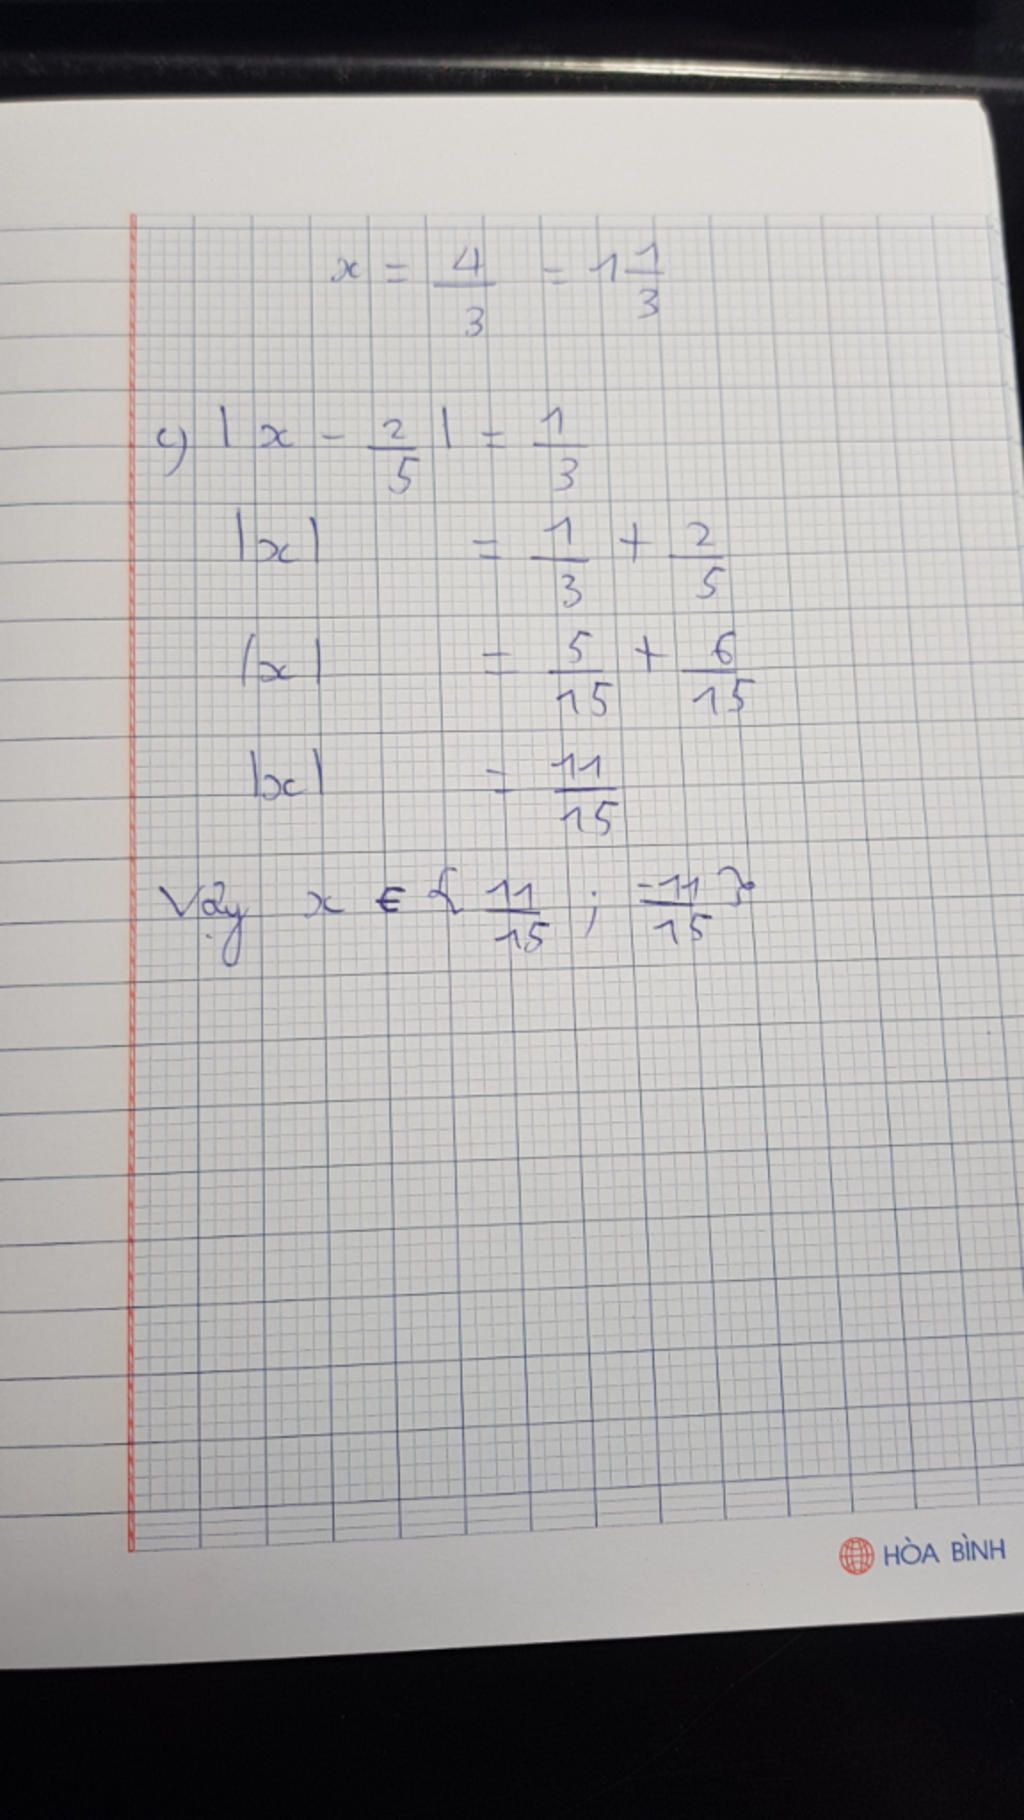 x = 4/3 = 1 1/3
c) |x - 2/5| = 1/3
|x| = 1/3 + 2/5
|x| = 5/15 + 6/15
|x| = 11/15
Vậy x ∈ { 11/15 ; -11/15 }
HÒA BÌNH